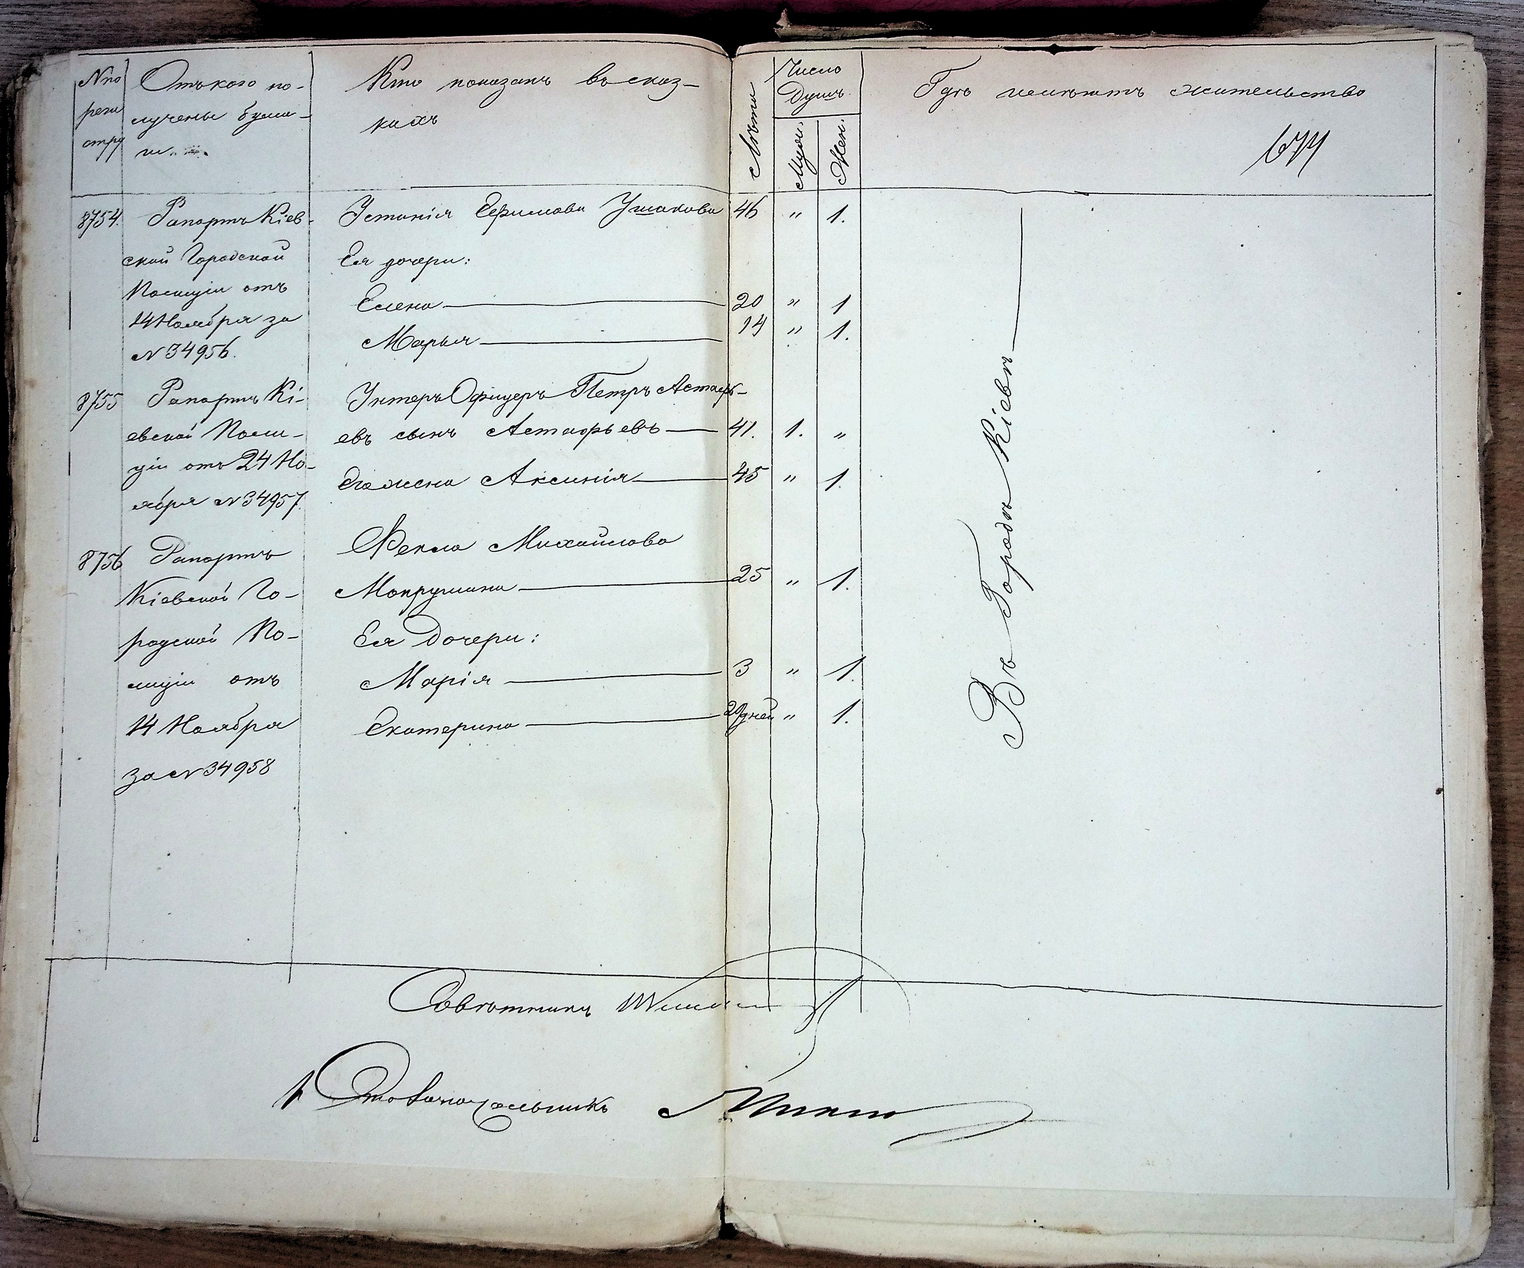 № по реги стру
Отъ кого по-
лучены бума-
ги.
Кто показанъ въ сказ-
кахъ
Лѣта
Число
Душъ.
Муж.
Жен.
Гдѣ имѣютъ жительство
8754.
Рапортъ Кіев-
ской Городской
Полиціи отъ
14 Ноября за
№ 34956.
Устинія Ефимова Ушакова 46 " 1.
Ея дочери:
Елена 20 " 1
Марья 14 " 1.
8755
Рапортъ Кі-
евской Поли-
ціи отъ 24 Но-
ября № 34957.
Унтеръ Офицеръ Петръ Астафь-
евъ сынъ Астафьевъ 41. 1. "
Его жена Аксинія 45 " 1.
8756
Рапортъ
Кіевской Го-
родской По-
лиціи отъ
14 Ноября
за № 34958
Фекла Михайлова
Мокрушина 25 " 1.
Ея Дочери:
Марія 3 " 1.
Екатерина дней " 1.
Въ Городѣ Кіевѣ
Совѣтникъ
Столоначальникъ